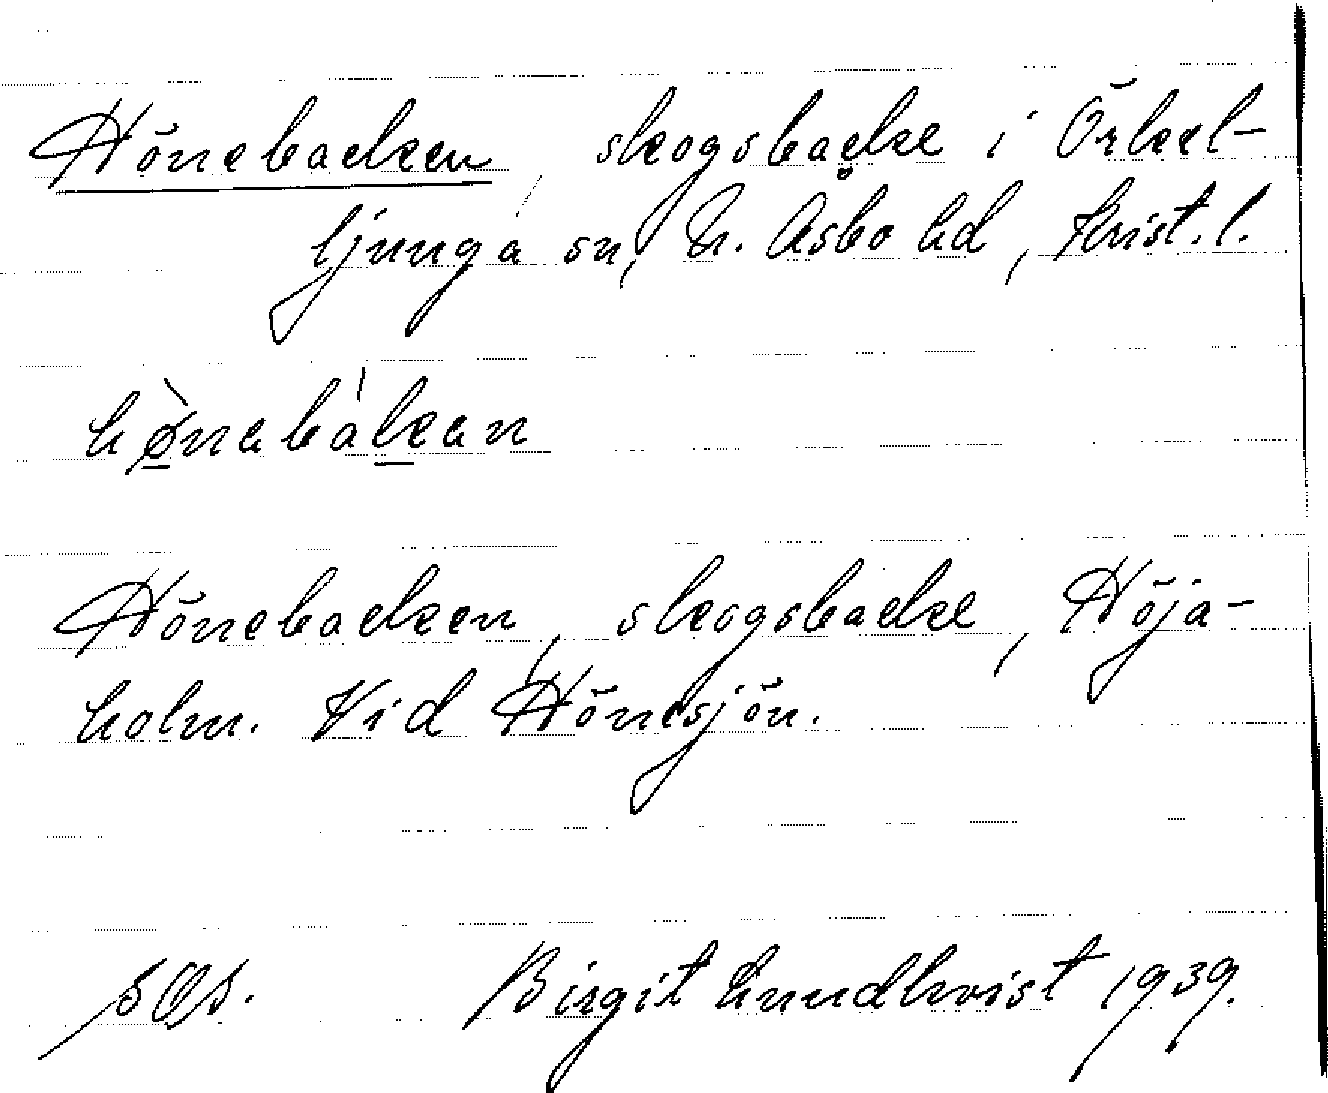 Hönebacken, skogsbacke i Örkel-
ljunga sn, N. Åsbo hd, Krist. l.
hønabakan
Hönebacken, skogsbacke, Höja-
holm. Vid Hönesjön.
Birgit Lundkvist 1939.